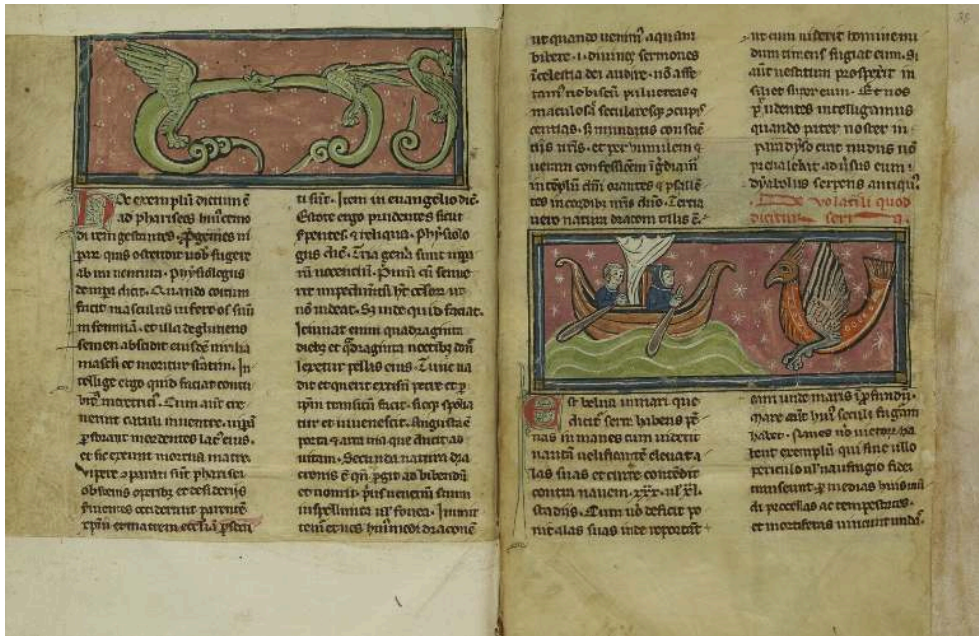 Hoc exemplū dictum ē
ad phariseos huiꝰcemo
di tem gestantes. Progenies vi
par quis ostendit vob fugere
ab ira ventura. Physiologus
de vipa dicit. Quando coitum
facit masculus infert os suū
in feminā. et illa deglutiens
semen abscidit eiusdē virilia
masclī et moritur statim. In
tellige ergo quid faciat concu
meretricis. Cum aut cre
uerint catuli in ventre. vipe
mordentes latꝰ eius.
et sic exeunt mortua matre
vipere pati sunt pharisei.
obscenis opibꝫ et desiderijs
fluentes occiderunt parentē
xpm et matrem eccliam
ti sunt. Item in euangelio dic̄.
Estote ergo prudentes sicut
spentes. et reliqua. Physiolo
gus dic̄. Tria gena sunt
Primū cū senue
rit
nō uideat. Sꝫ inde quid faciat.
Ieiunat enim quadraginta
diebꝫ et qdraginta noctibꝫ
pellis eius. Tunc ua
dit et querit
transitum facit. sicqꝫ spolia
tur et iuuenescit. Angusta ē
porta et arta uia que ducit ad
uitam. Secunta natura dra
conis ē qn pgit ad bibendū
et uomit prius uenenū suum
fouea. Imi
tem et nos dracone
ut quando uenimꝰ aquam
bibere .i. diuinos sermones
celestia dei audire. nō affe
ramꝰ nobiscū puluereas
maculosā secularesqꝫ
centias. sꝫ mundatis
tijs nr̄is. et per humilem et
ueram confessionem
orantes et psallē
tes in cordibꝫ nr̄is dn̄o. Tertia
uero natura draconi talis ē.
ut cum uiderit homine nu
dum timens fugiat eum. Si
aut uestitum prospexit in
silit et super eum. Et nos
prudentes intelligamus
quando pater noster in
paradyso erat nudus nō
preualebat aduersus eum
dyabolus serpens antiquꝰ.
De volatili quod
dicitur serra.
Est belua in mari que
dicit serre habens pē
nas in manes cum uiderit
nauem uelificantē eleuat a
las suas et contendit
contra nauem. xxx. ul xl.
stadijs. Cum uō deficit po
nit alas suas inde reportant
eam unde maris ī pfundū.
mare aut huiꝰ seculi figuram
habet. Naues uō
bent exemplū qui sine ullo
periculo ul naufragio fidei
transeunt p medias huiꝰ mū
di procellas ac tempestates.
et mortiferas uincunt undas.